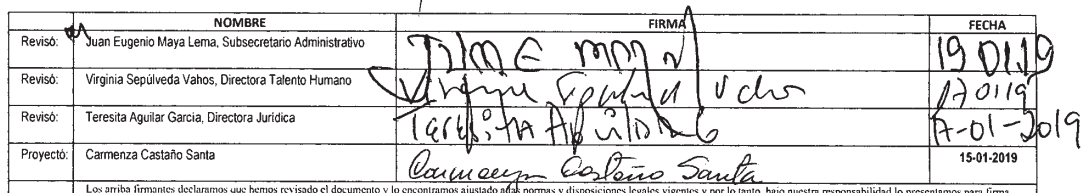 NOMBRE FIRMA FECHA
Revisó: Juan Eugenio Maya Lema, Subsecretario Administrativo 19 01 19
Revisó: Virginia Sepúlveda Vahos, Directora Talento Humano 170119
Revisó: Teresita Aguilar Garcia, Directora Jurídica 17-01-2019
Proyectó: Carmenza Castaño Santa Carmenza Castaño Santa 15-01-2019
Los arriba firmantes declaramos que hemos revisado el documento y lo encontramos ajustado a las normas y disposiciones legales vigentes y por lo tanto, bajo nuestra responsabilidad lo presentamos para firma.